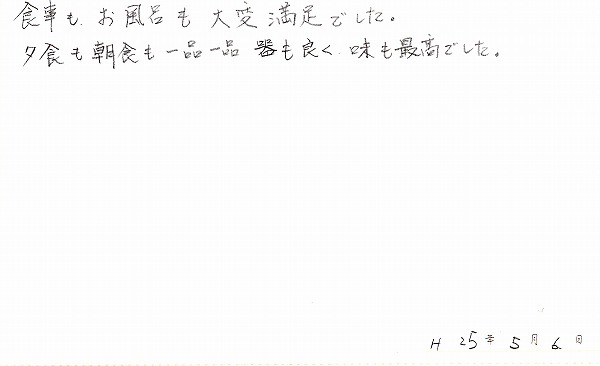 食事も、お風呂も大変満足でした。
夕食も朝食も一品一品 器も良く、味も最高でした。
H 25年 5月 6日